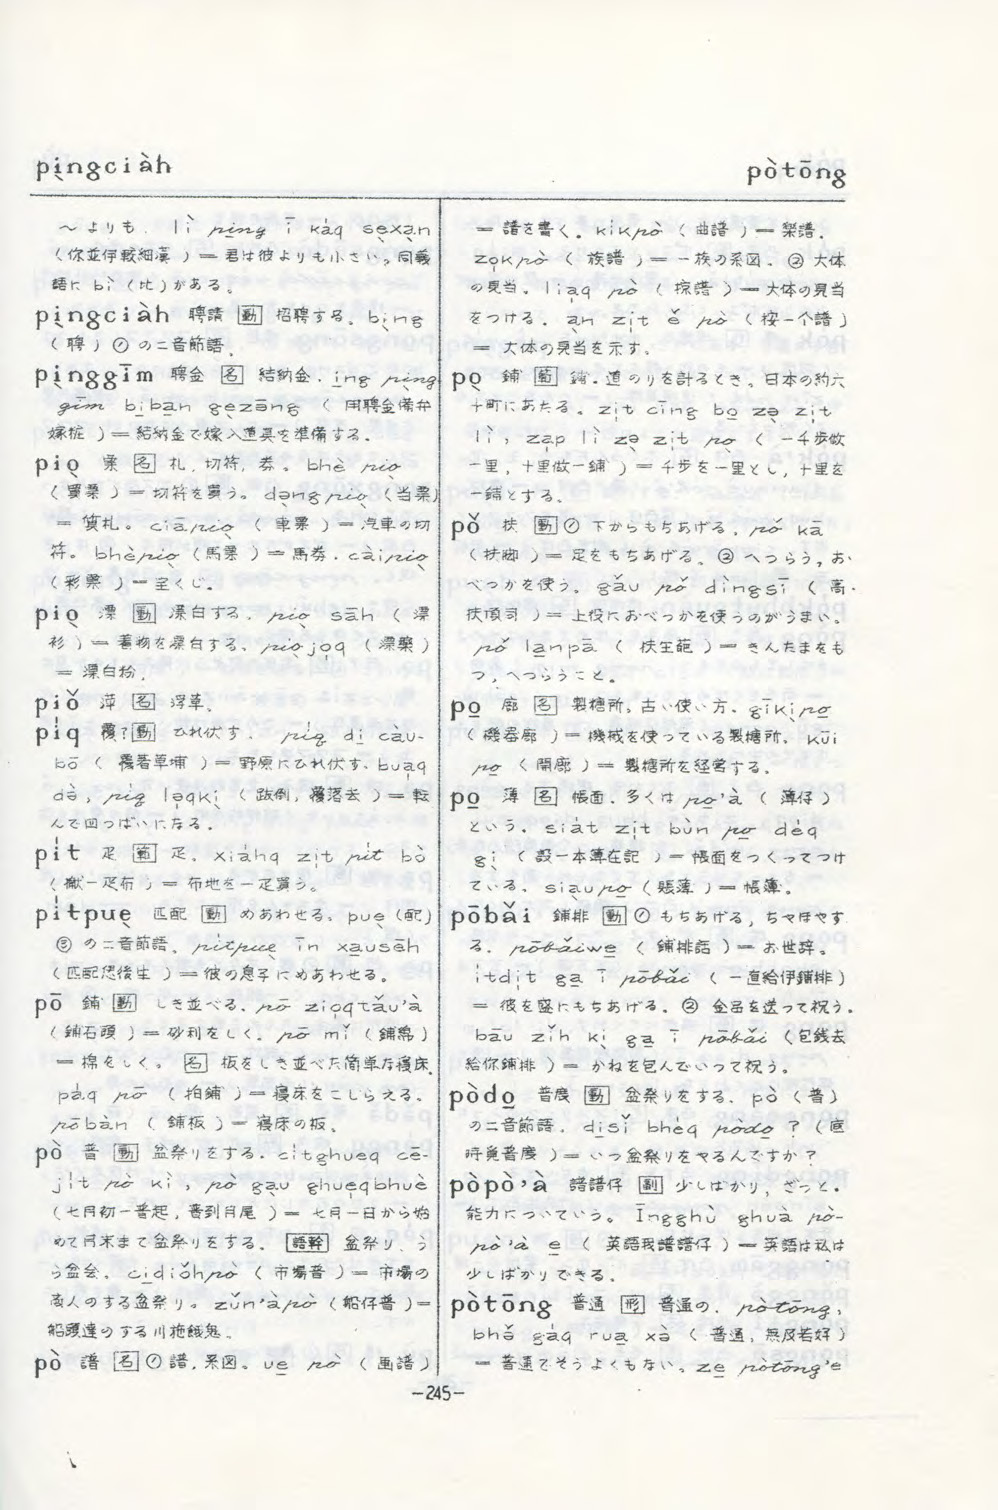 pi̱ngciàh
pòtōng
～よりも. lì pi̱ng ī ka̍q sẹxạn
(你並伊較細漢)＝君は彼よりも小さい。同義
語に bì (比)がある。
pị̀ngciàh 聘請 [動] 招聘する. bị̀ng
(聘)①の二音節語.
pị̀nggīm 聘金 [名] 結納金. ịng pị̀ng
gīm bịbạn gẹzāng (用聘金備弁
嫁粧)＝結納金で嫁入道具を準備する.
piọ 票 [名] 札,切符,券。bhè piọ
(買票)＝切符を買う。dạngpiọ (当票)
＝質札。ciāpiọ (車票)＝汽車の切
符。bhèpiọ (馬票)＝馬券. càipiọ
(彩票)＝宝くじ.
piọ 漂 [動] 漂白する. piọ sāh (漂
衫)＝着物を漂白する. piọjoq (漂薬)
＝漂白粉.
piǒ 萍 [名] 浮草.
pi̍q 覆? [動] ひれ伏す. pi̍q dị càu-
bō (覆著草埔)＝野原にひれ伏す. buaq
dè, pi̍q laqkị (跋倒,覆落去)＝転
んで四つばいになる.
pi̍t 疋 [範] 疋. xiāhq zi̍t pi̍t bò
(獻一疋布)＝布地を一疋買う。
pi̍tpuẹ 匹配 [動] めあわせる. puẹ(配)
③の二音節語. pi̍tpuẹ īn xạusēh
(匹配恁後生)＝彼の息子にめあわせる.
pō 鋪 [動] しき並べる. pō zioqtǎu'à
(鋪石頭)＝砂利をしく. pō mǐ (鋪綿)
＝棉をしく。[名] 板をしき並べた簡単な寝床.
paq pō (拍鋪)＝寝床をこしらえる.
pōbàn (鋪板)＝寝床の板.
pò 普 [動] 盆祭りをする. citghueq cē-
ji̍t pò kì, pò gạu ghueqbhuè
(七月初一普起,普到月尾)＝七月一日から始
めて月末まで盆祭りをする. [語幹] 盆祭り.う
ら盆会. cịdiǒhpò (市場普)＝市場の
商人のする盆祭り。zǔn'àpò (船仔普)＝
船頭達のする川施餓鬼。
pò 譜 [名] ①譜,系図。uẹ pò (画譜)
＝譜を書く. kikpò (曲譜)＝楽譜.
zokpò (族譜)＝一族の系図. ②大体
の見当. liaq pò (掠譜)＝大体の見当
をつける. ạn zi̍t ě pò (按一个譜)
＝大体の見当を示す。
pọ 鋪 [範] 鋪.道のりを計るとき。日本の約六
十町にあたる。zi̍t cīng bọ zọ zi̍t
lì, zap lì zọ zi̍t pọ (一千歩做
一里,十里做一鋪)＝千歩を一里とし,十里を
一鋪とする。
pǒ 扶 [動] ①下からもちあげる. pǒ kā
(扶脚)＝足をもちあげる. ②へつらう,お
べっかを使う。gǎu pǒ dìngsī (高
扶頂司)＝上役におべっかを使うのがうまい。
pǒ lạnpā (扶王葩)＝きんたまをも
つ,へつらうこと。
pọ 廍 [名] 製糖所,古い使い方. gīkịpọ
(機器廍)＝機械を使っている製糖所. kūi
pọ (開廍)＝製糖所を経営する.
pọ 薄 [名] 帳面.多くは pọ'à (薄仔)
という. siat zi̍t bùn pọ deq
gị (設一本薄在記)＝帳面をつくってつけ
ている. siaupọ (賬薄)＝帳簿.
pōbǎi 鋪排 [動] ①もちあげる,ちやほやす
る. pōbǎiwẹ (鋪排話)＝お世辞.
i̍tdi̍t gạ ī pōbǎi (一直給伊鋪排)
＝彼を盛にもちあげる。②金品を送って祝う.
bāu zǐh kị gạ ī pōbǎi (包銭去
給你鋪排)＝かねを包んでいって祝う.
pòdọ 普度 [動] 盆祭りをする. pò (普)
の二音節語. dịsǐ bheq pòdọ? (底
時覓普度)＝いつ盆祭りをやるんですか?
pòpò'à 譜譜仔 [副] 少しばかり,ざっと.
能力についていう。Īngghù ghuà pò-
pò'à ẹ (英語我譜譜仔)＝英語は私は
少しばかりできる.
pòtōng 普通 [形] 普通の. pòtōng,
bhǒ gaq ruạ xà (普通,無及若好)
＝普通でそうよくもない. zẹ pòtōng'e
-245-